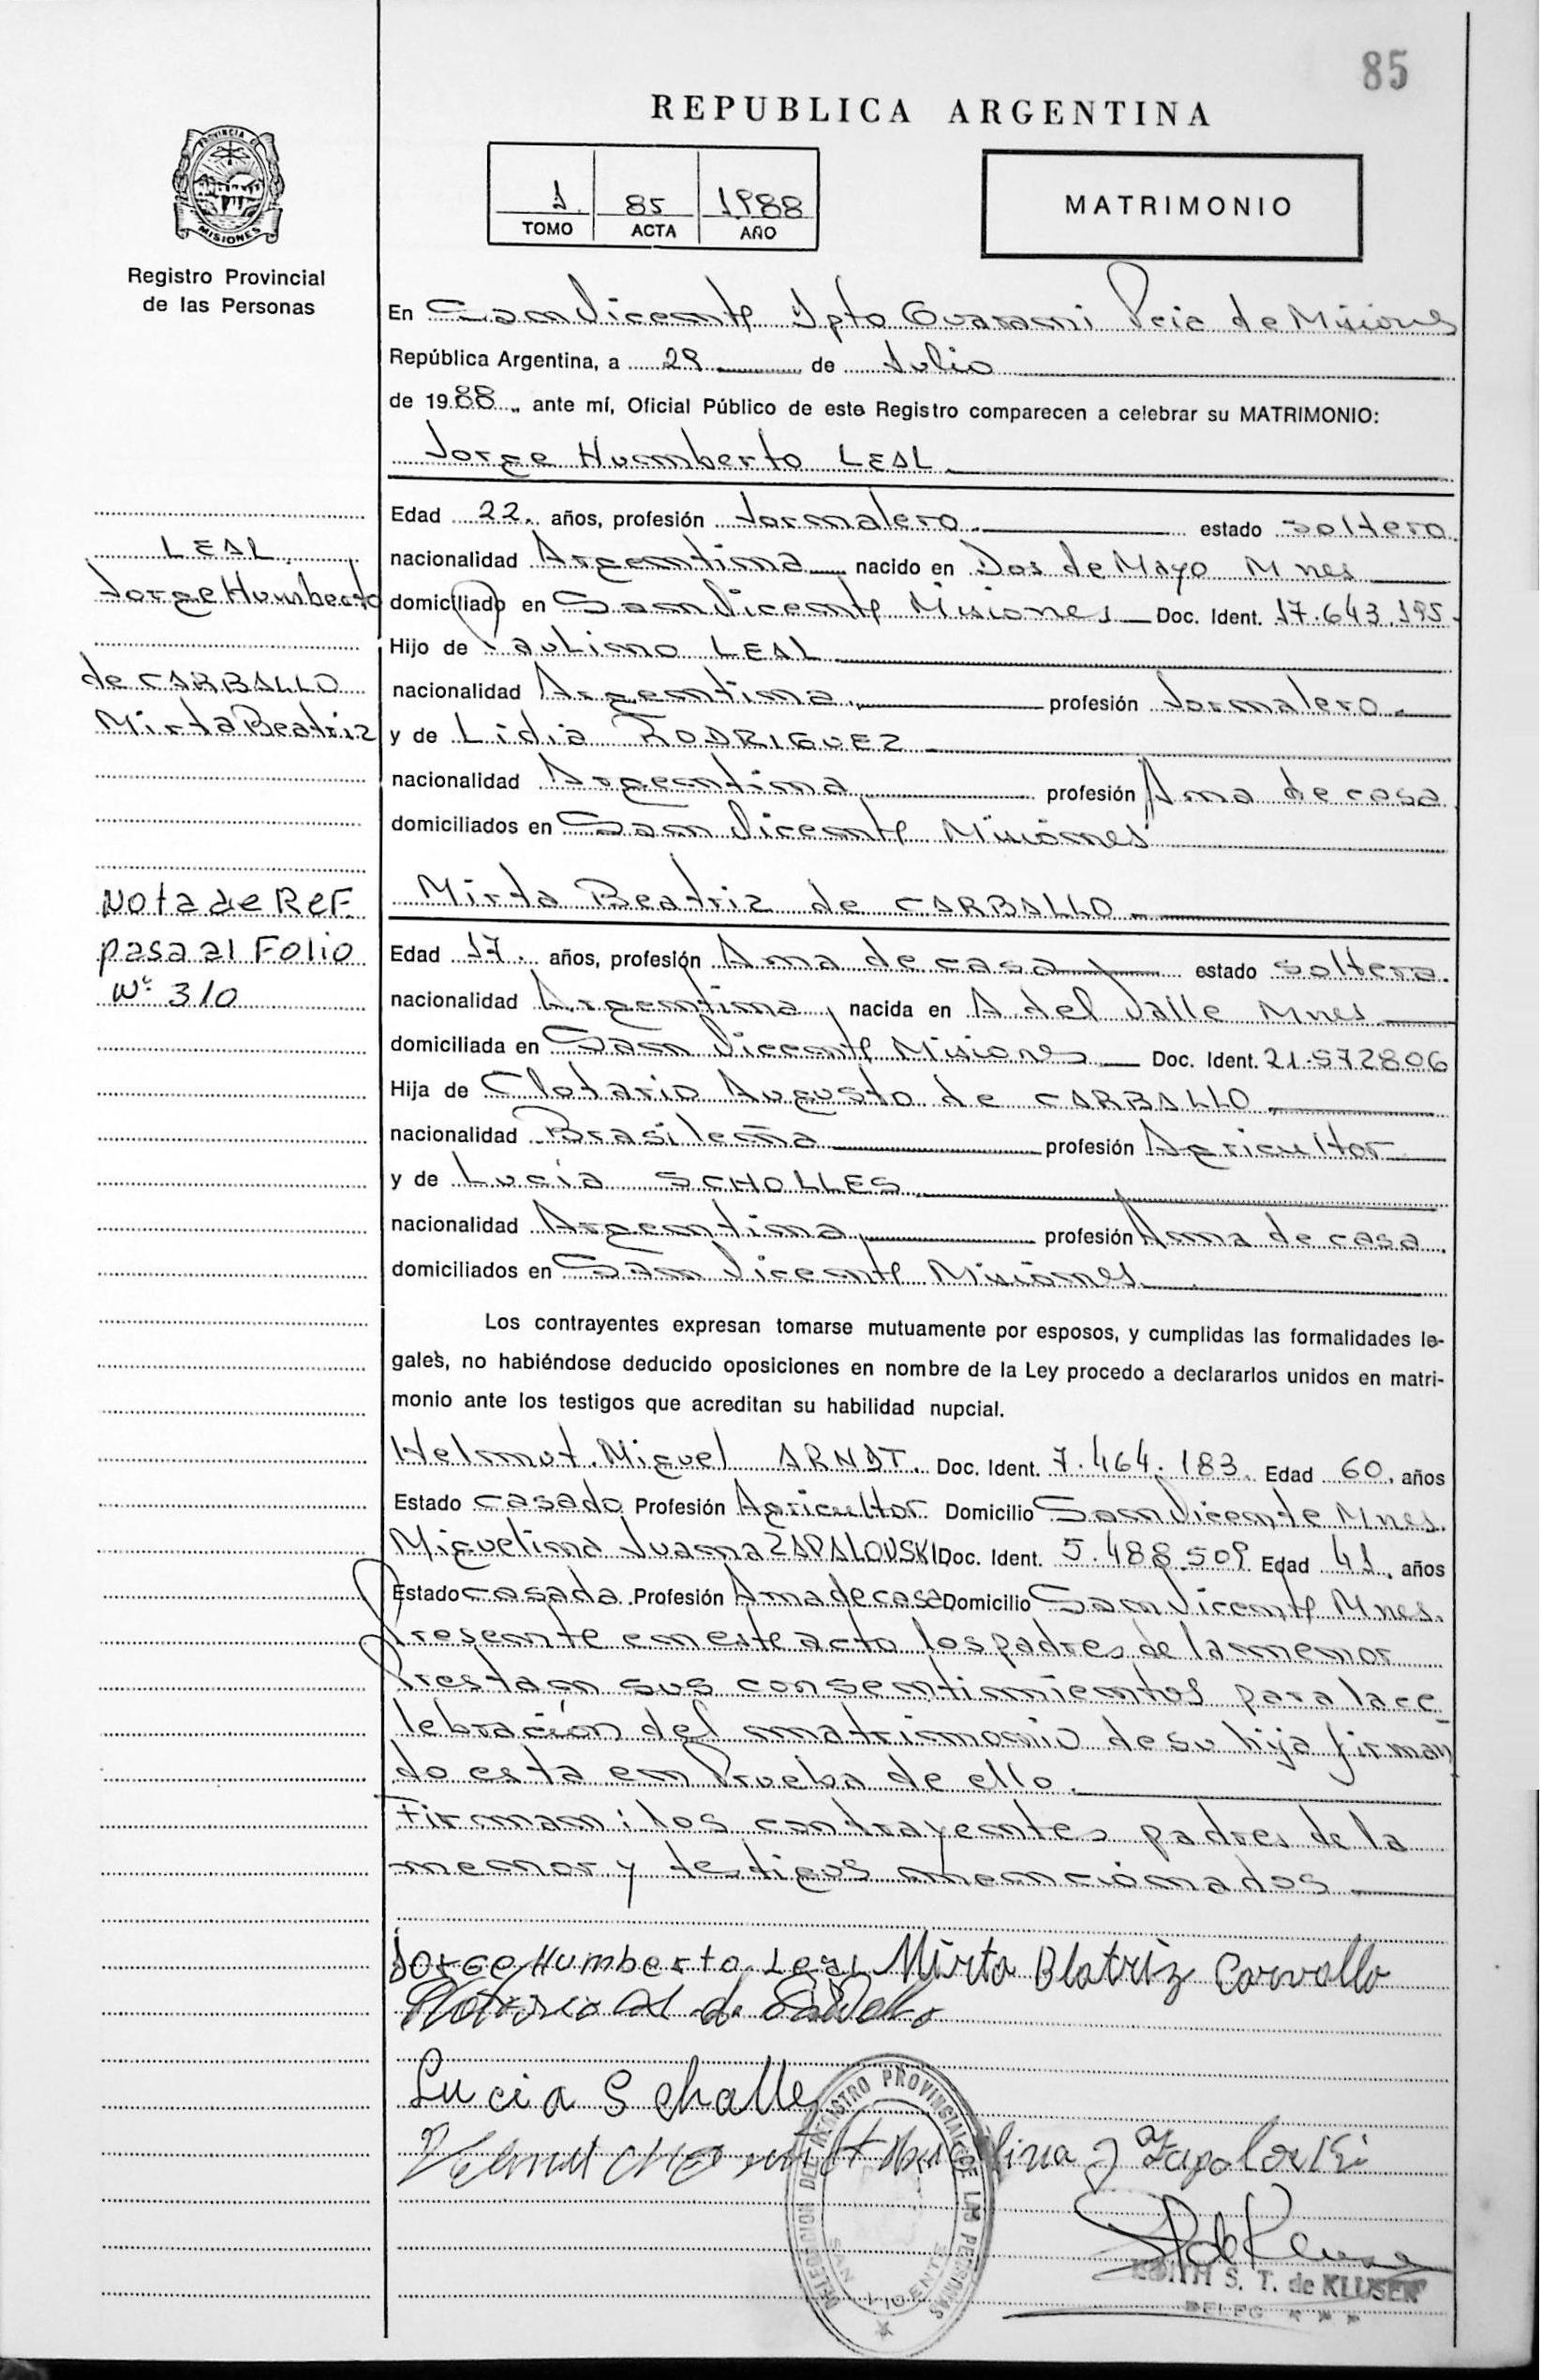 85
REPUBLICA ARGENTINA
PROVINCIA
MISIONES
1 85 1988
TOMO ACTA AÑO
MATRIMONIO
Registro Provincial
de las Personas
En San Vicente Dpto Guarani Pcia de Misiones
República Argentina, a 29 de Julio
de 1988 ante mí, Oficial Público de este Registro comparecen a celebrar su MATRIMONIO:
Jorge Humberto LEAL
LEAL
Jorge Humberto
de CARBALLO
Mirta Beatriz
Nota de REF.
pasa al Folio
Nº 310
Edad 22. años, profesión Jornalero estado soltero.
nacionalidad Argentina nacido en Dos de Mayo Mnes
domiciliado en San Vicente Misiones Doc. Ident. 17.643.195.
Hijo de Paulino LEAL
nacionalidad Argentina profesión Jornalero
y de Lidia RODRIGUEZ
nacionalidad Argentina profesión Ama de casa
domiciliados en San Vicente Misiones
Mirta Beatriz de CARBALLO
Edad 17. años, profesión Ama de casa estado soltera.
nacionalidad Argentina, nacida en A. del Valle Mnes
domiciliada en San Vicente Misiones Doc. Ident. 21.572806
Hija de Clotario Augusto de CARBALLO
nacionalidad Brasileña profesión Agricultor
y de Lucia SCHOLLES
nacionalidad Argentina profesión Ama de casa.
domiciliados en San Vicente Misiones
Los contrayentes expresan tomarse mutuamente por esposos, y cumplidas las formalidades le-
gales, no habiéndose deducido oposiciones en nombre de la Ley procedo a declararlos unidos en matri-
monio ante los testigos que acreditan su habilidad nupcial.
Helmut Miguel ARNDT. Doc. Ident. 7.464.183. Edad 60. años
Estado casado Profesión Agricultor Domicilio San Vicente Mnes.
Miguelina Juana ZAPALOVSKI Doc. Ident. 5.488.509 Edad 41. años
Estado casada Profesión Ama de casa Domicilio San Vicente Mnes.
Presente en este acto los padres de la menor
Prestan sus consentimientos para la ce
lebración del matrimonio de su hija firman
do esta en Prueba de ello.
Firman: los contrayentes padres de la
menor y testigos mencionados
Jorge Humberto Leal Mirta Beatriz Carvallo
Lucia Scholles
DELEGACION DEL REGISTRO PROVINCIAL DE LAS PERSONAS
SAN VICENTE
EDITH S. T. de KLUSEN